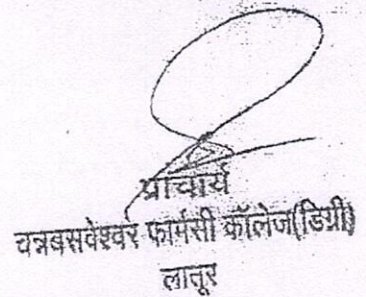 प्राचार्य
चन्नबसवेश्वर फार्मसी कॉलेज(डिग्री)
लातूर